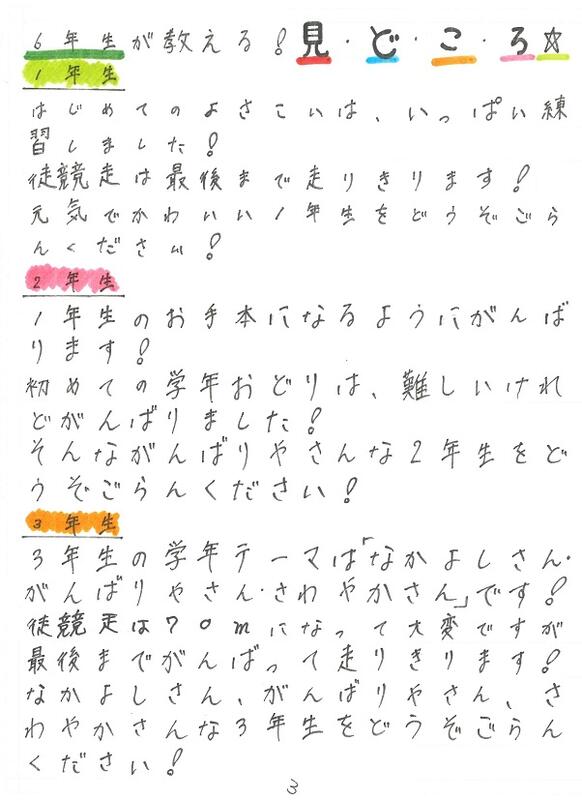 6年生が教える!見・ど・こ・ろ☆
1年生
はじめてのよさこいは、いっぱい練
習しました!
徒競走は最後まで走りきります!
元気でかわいい1年生をどうぞごら
んください!
2年生
1年生のお手本になるようにがんば
ります!
初めての学年おどりは、難しいけれ
どがんばりました!
そんながんばりやさんな2年生をど
うぞごらんください!
3年生
3年生の学年テーマは「なかよしさん・
がんばりやさん・さわやかさん」です!
徒競走は70mになって大変ですが
最後までがんばって走りきります!
なかよしさん、がんばりやさん、さ
わやかさんな3年生をどうぞごらん
ください!
3